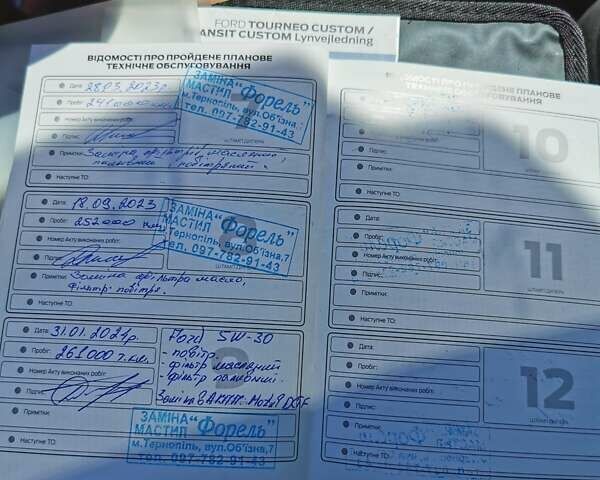 FORD TOURNEO CUSTOM /
ANSIT CUSTOM Lynvejledning
ВІДОМОСТІ ПРО ПРОЙДЕНЕ ПЛАНОВЕ
ТЕХНІЧНЕ ОБСЛУГОВУВАННЯ
Дата: 28.03.2023р
Пробіг: 241000
Номер Акту виконаних робіт:
Підпис:
Примітки: Заміна фільтрів масляний,
паливний, повітряний.
Наступне ТО:
ЗАМІНА "Форель"
МАСТИЛ
м.Тернопіль, вул.Об'їзна,7
тел. 097-782-91-43
ШТАМП ДИЛЕРА
Дата: 18.09.2023
Пробіг: 252000 км
Номер Акту виконаних робіт:
Підпис:
Примітки: Заміна фільтра масло,
фільтр повітря.
Наступне ТО:
ЗАМІНА "Форель"
МАСТИЛ
м.Тернопіль, вул.Об'їзна,7
тел. 097-782-91-43
ШТАМП ДИЛЕРА
Дата: 31.01.2024р.
Пробіг: 261000 т.км.
Номер Акту виконаних робіт:
Підпис:
Примітки:
Наступне ТО:
Ford 5W-30
- повітр.
фільтр масляний
- фільтр паливний.
Заміна
ЗАМІНА "Форель"
МАСТИЛ
м.Тернопіль, вул.Об'їзна,7
тел. 097-782-91-43
ВІДОМОСТІ ПРО ПРОЙДЕНЕ ПЛАНОВЕ
ТЕХНІЧНЕ ОБСЛУГОВУВАННЯ
Дата:
Пробіг:
Номер Акту виконаних робіт:
Підпис:
Примітки:
Наступне ТО:
10
ШТАМП ДИЛЕРА
Дата:
Пробіг:
Номер Акту виконаних робіт:
Підпис:
Примітки:
Наступне ТО:
11
ШТАМП ДИЛЕРА
Дата:
Пробіг:
Номер Акту виконаних робіт:
Підпис:
Примітки:
Наступне ТО:
12
ШТАМП ДИЛЕРА